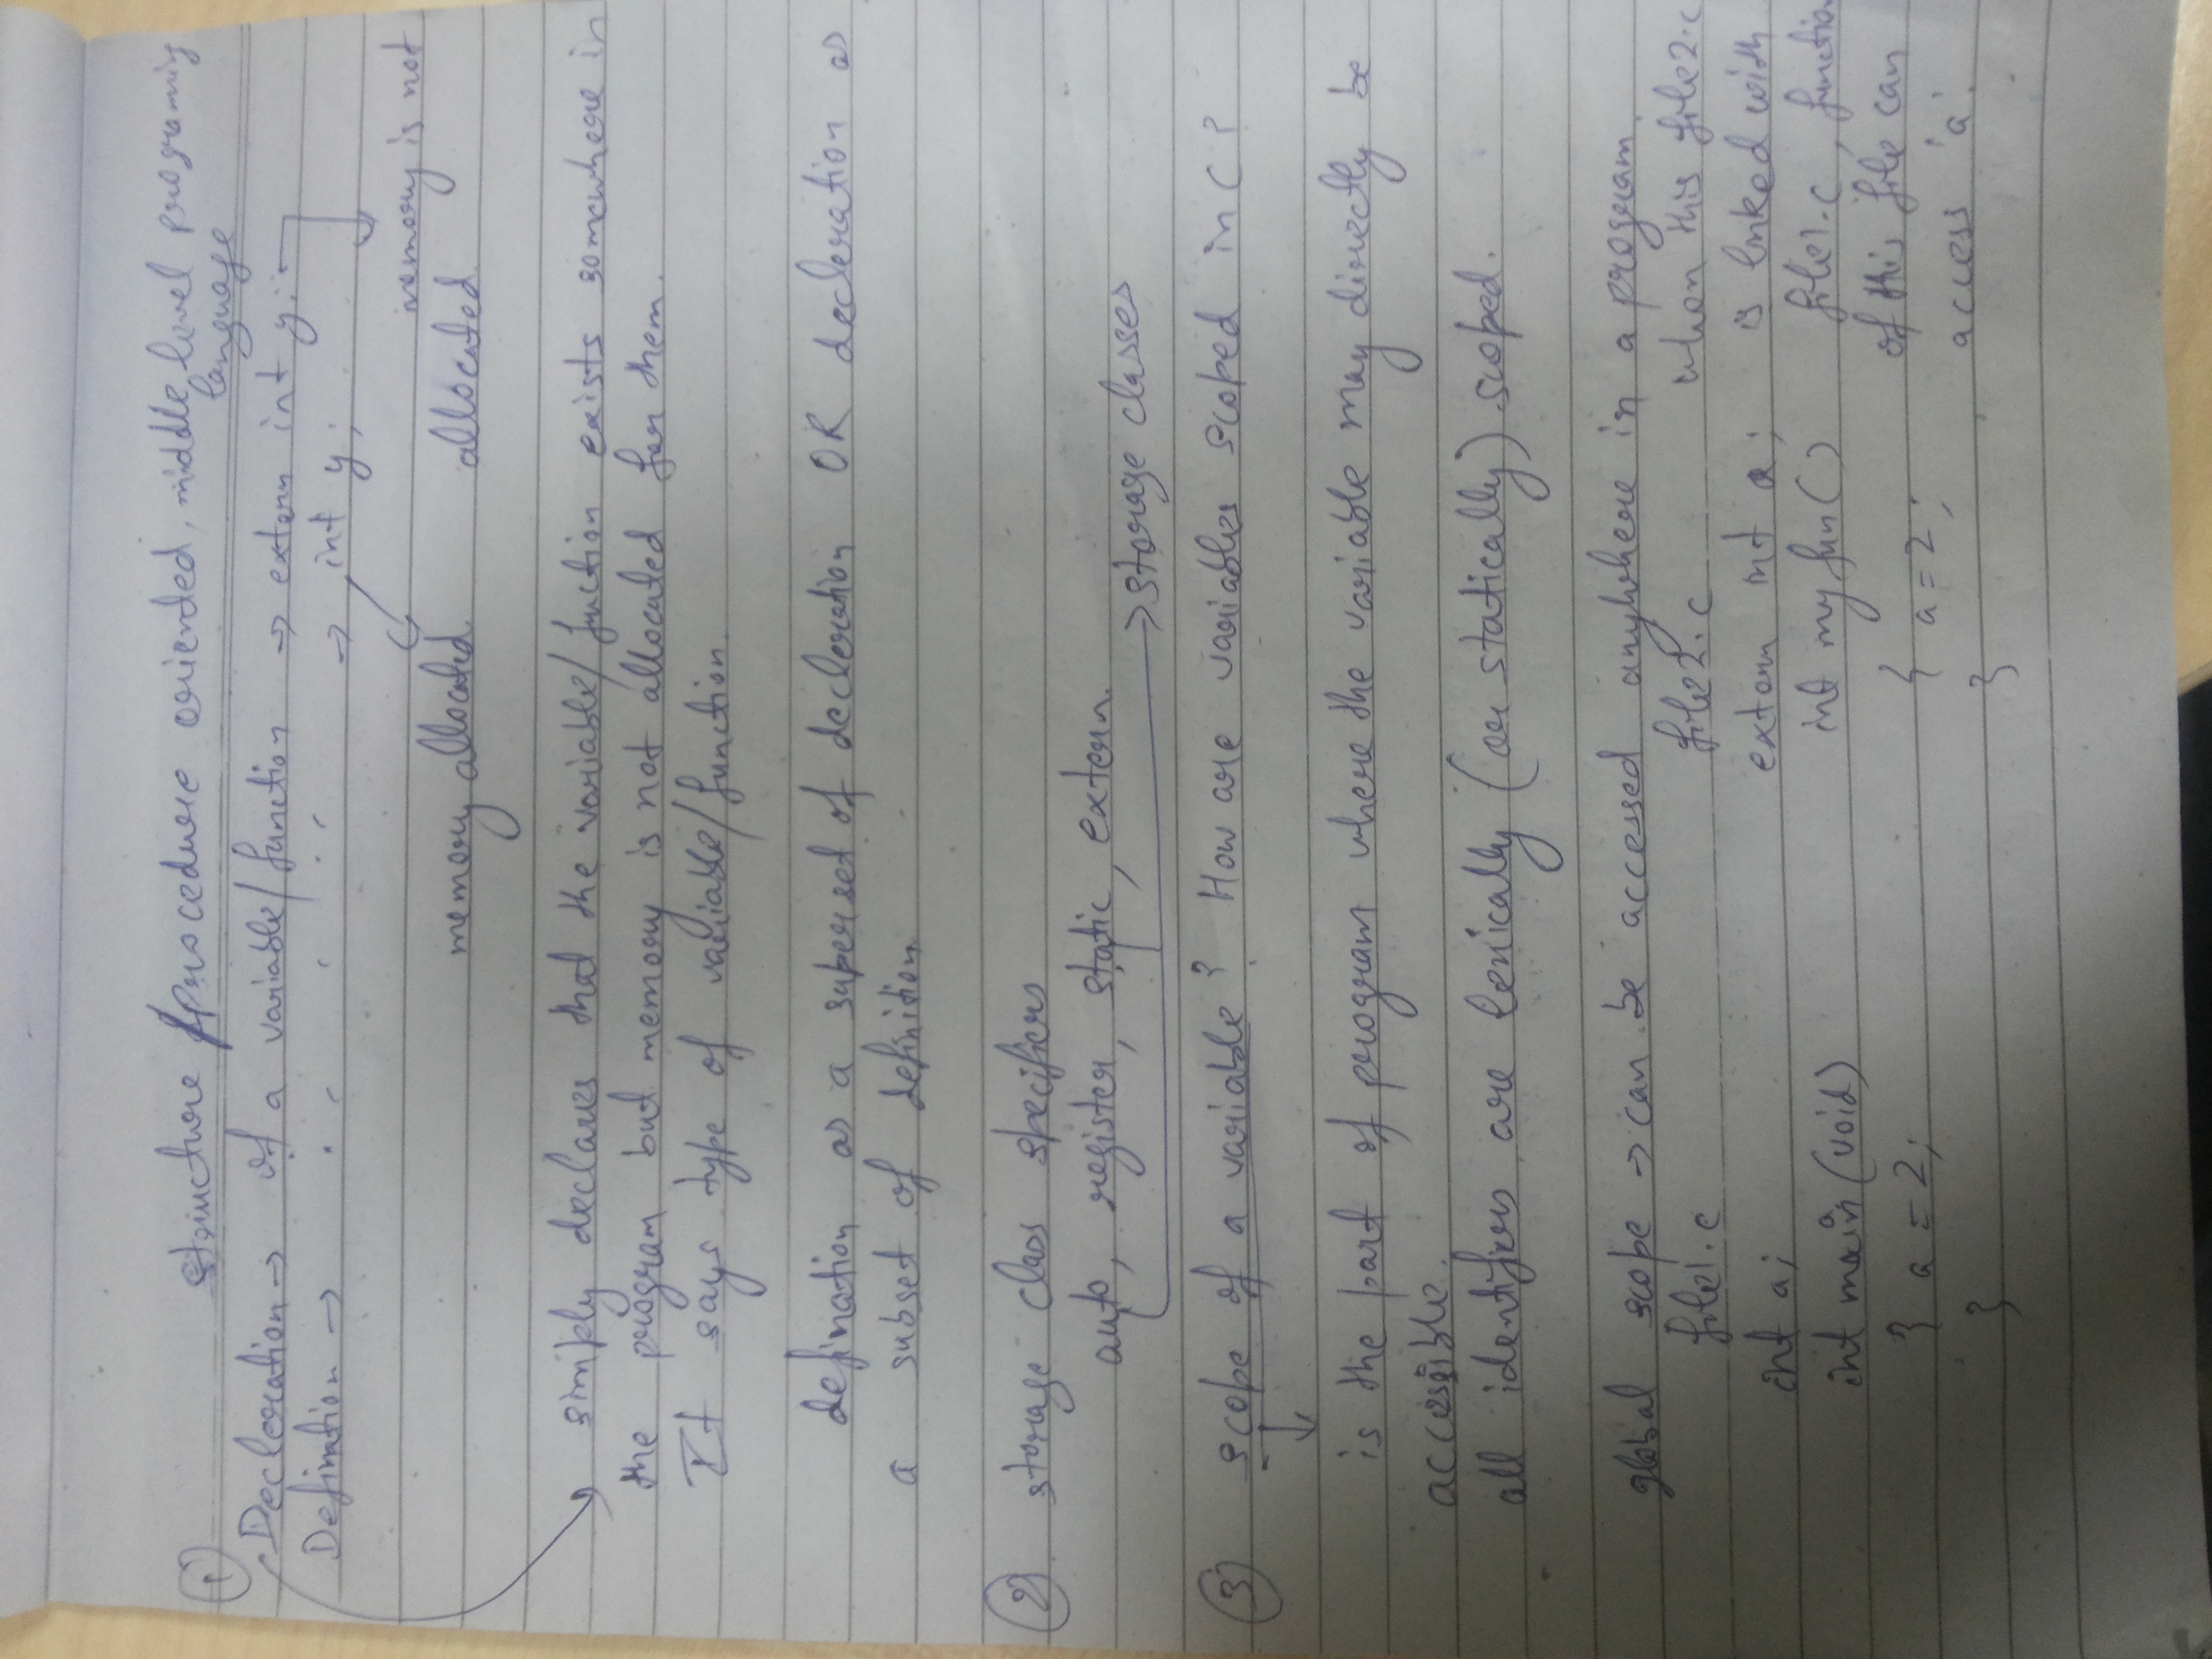 structure /procedure oriented, middle level programing
language
①
Decleration → of a variable/function → extern int y;
Defination → " " " " → int y;
memory is not
memory allocated. allocated.
simply declares that the variable/function exists somewhere in
the program but memory is not allocated for them.
It says type of variable/function.
defination as a superset of decleration OR decleration as
a subset of definition
② storage class specifiers
auto, register, static, extern.
→ storage classes
③ scope of a variable? How are variables scoped in C?
is the part of program where the variable may directly be
accessible.
all identifiers are lexically (or statically) scoped.
global scope → can be accessed anywhere in a program.
file1.c file2.c when this file2.c
int a; extern int a; is linked with
int main (void) int myfun() file1.c, function
{ a = 2; { a = 2; of this file can
} } access 'a'.